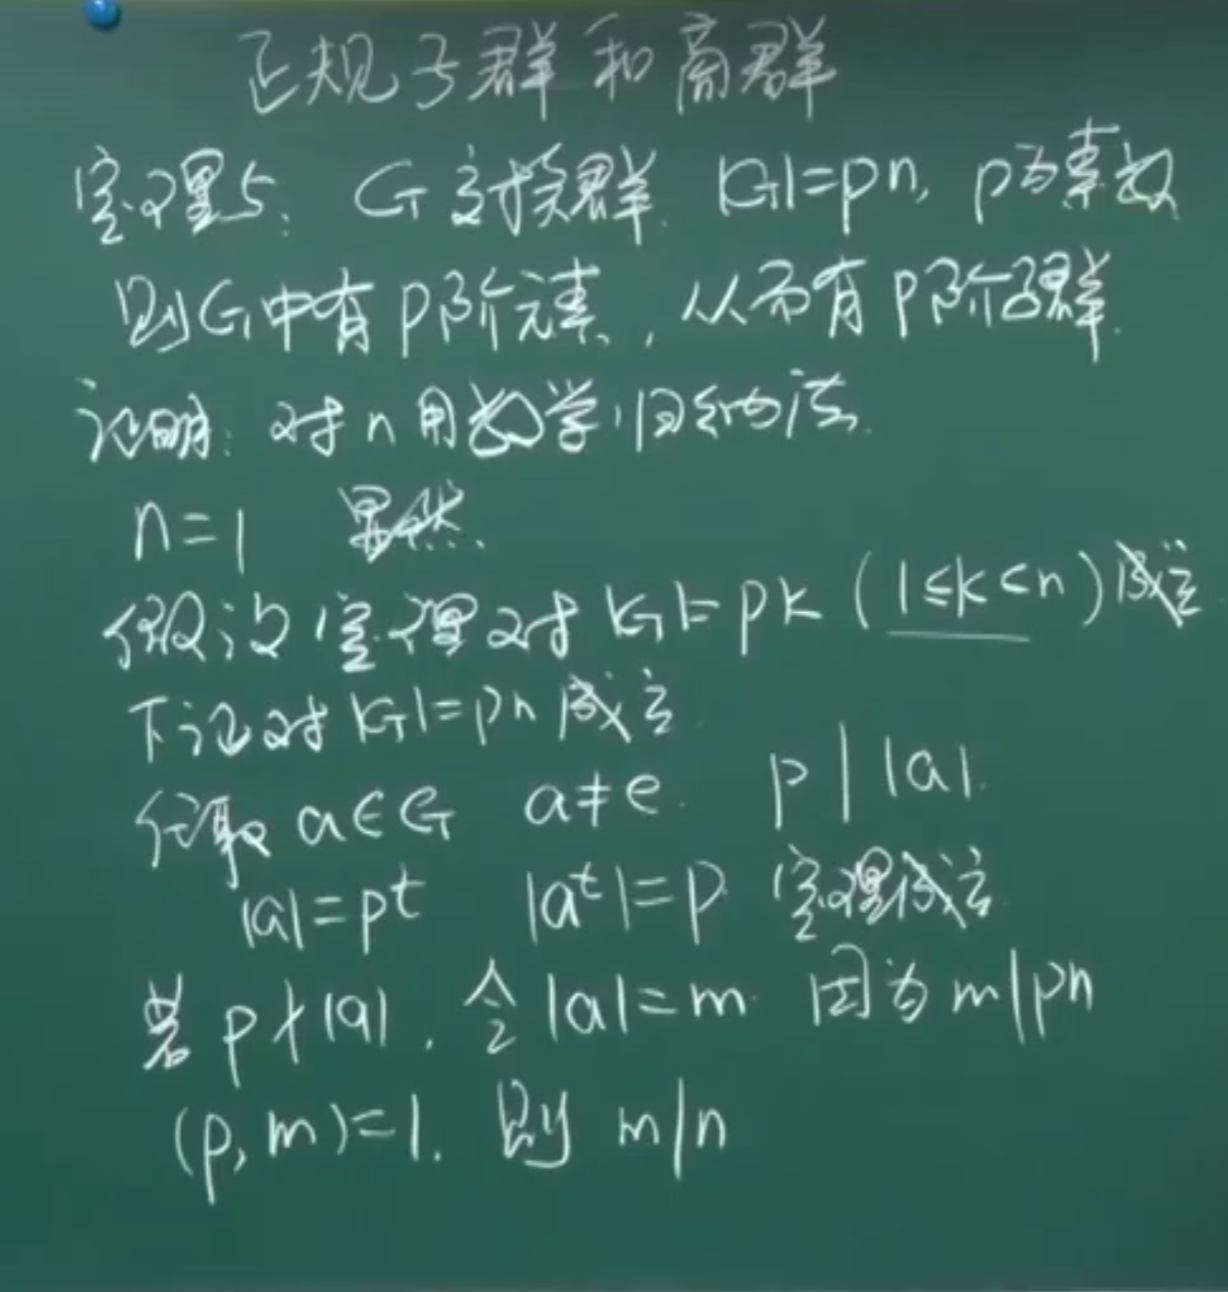 正规子群和商群
定理5: G交换群. |G|=pn, p为素数
则G中有p阶元素, 从而有p阶子群.
证明: 对n用数学归纳法.
n=1 显然.
假设定理对|G|=pk (1≤k<n)成立
下证对|G|=pn成立.
任取a∈G a≠e. p||a|.
|a|=pt |aᵗ|=p 定理成立.
若p∤|a|, 令|a|=m. 因为m|pn
(p,m)=1. 则 m|n